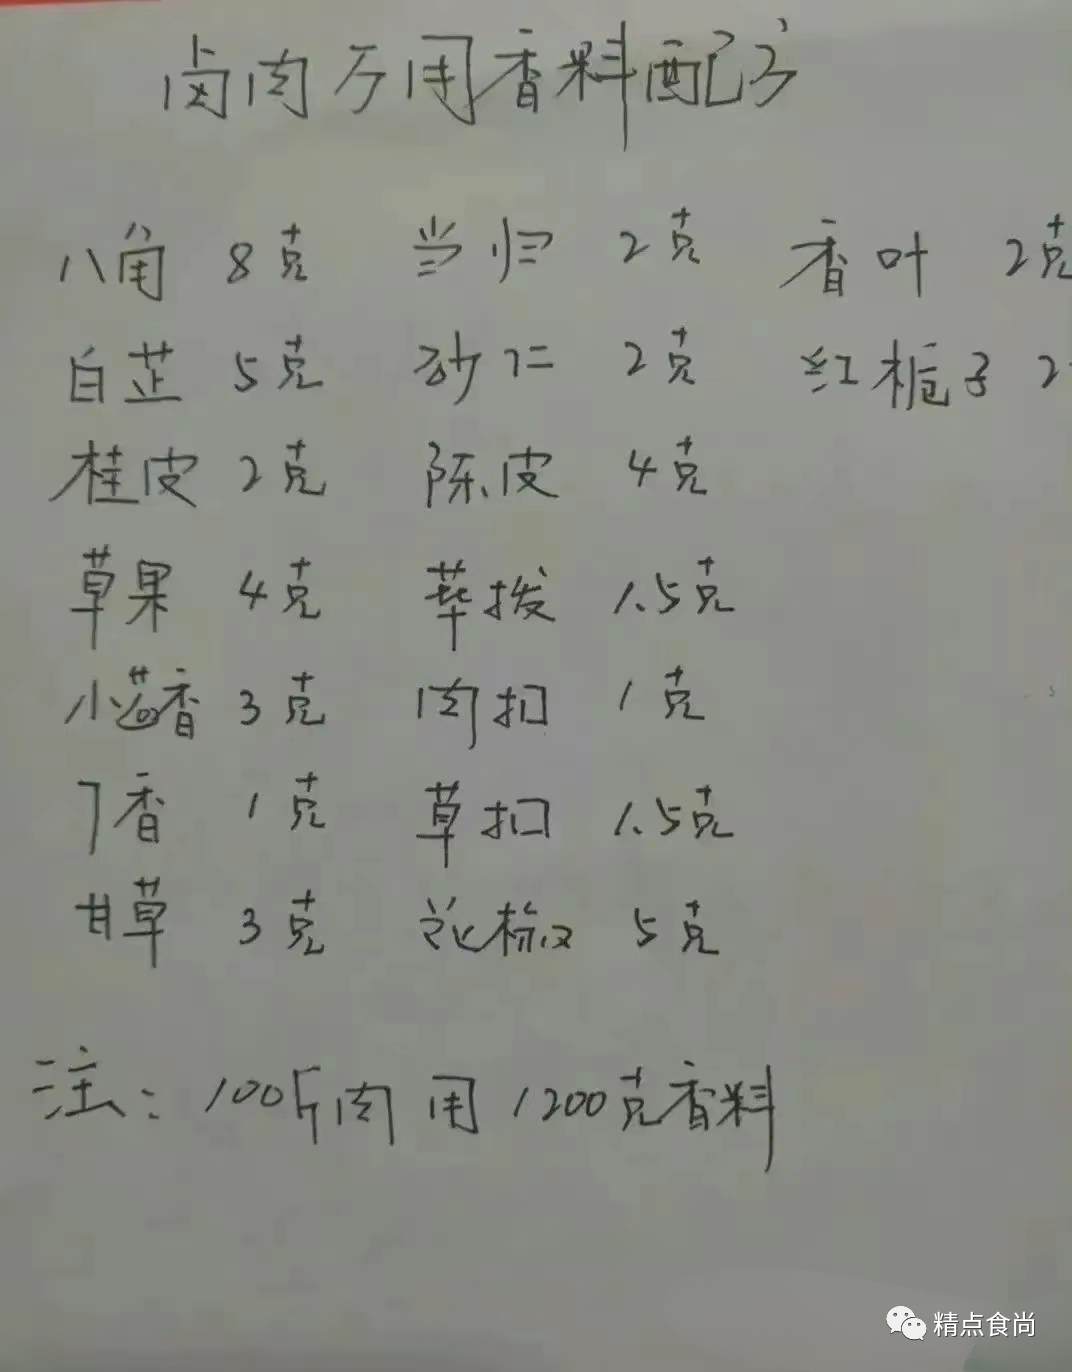 卤肉万用香料配方
八角 8克 当归 2克 香叶 2克
白芷 5克 砂仁 2克 红栀子 2
桂皮 2克 陈皮 4克
草果 4克 荜拨 1.5克
小茴香 3克 肉扣 1克
丁香 1克 草扣 1.5克
甘草 3克 花椒 5克
注：100斤肉用1200克香料
精点食尚